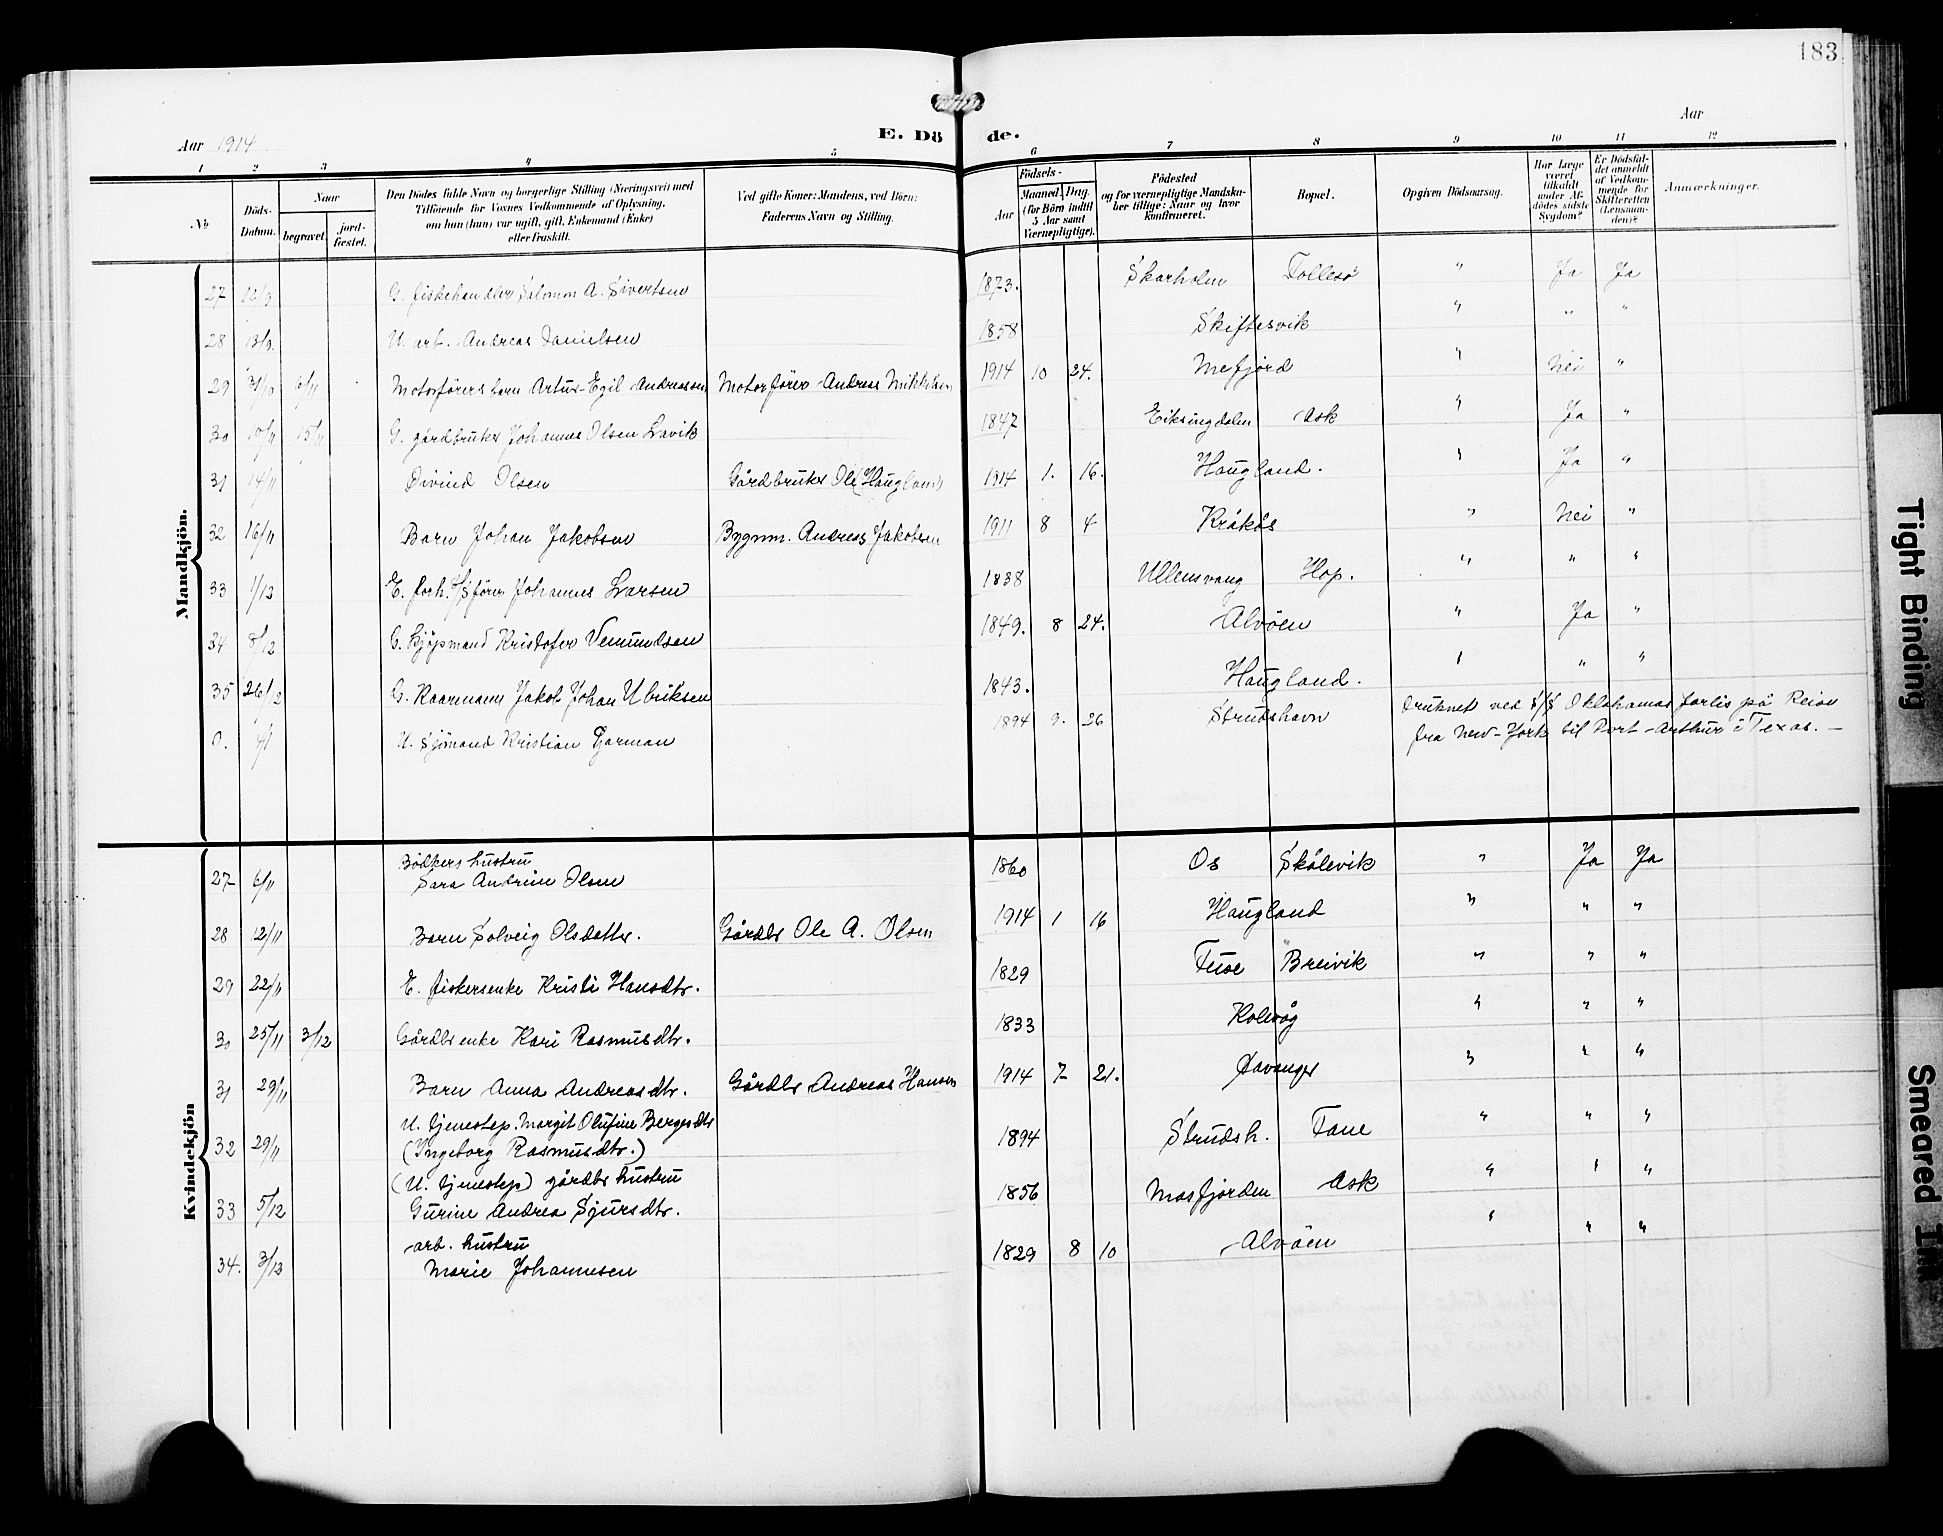 183
Aar 1914
E. Dö de.
Aar
1 2 3 4 5 6 7 8 9 10 11 12
No
Döds-Datum.
Naar
begravet.
jord-fæstet.
Den Dödes fulde Navn og borgerlige Stilling (Næringsvei) med
Tilföiende for Voxnes Vedkommende af Oplysning,
om han (hun) var ugift, gift, Enkemand (Enke)
eller fraskilt.
Ved gifte Koner: Mandens, ved Börn:
Faderens Navn og Stilling.
Födsels-
Aar
Maaned. Dag.
(for Börn indtil
5 Aar samt
Værnepligtige).
Födested
og for værnepligtige Mandska-
ber tillige: Naar og hvor
konfirmeret.
Bopæl.
Opgiven Dödsaarsag.
Har Læge
været
tilkaldt
under Af-
dödes sidste
Sygdom?
Er Dödsfal-
det anmeldt
af Vedkom-
mende for
Skifteretten
(Lensman-
den)?
Anmærkninger.
Mandkjön.
27 12/9 G. fiskehandler Salomon A. Sivertsen 1873. Skarholm Follesø " Ja Ja
28 13/9. U. arb. Andreas Danielsen 1858 Skiftesvik " " "
29 31/10 6/11 Motorførers barn Artur-Egil Andreassen Motorfører Andreas Mikkelsen 1914 10 24. Mefjord " Nei "
30 10/11 15/11 G. gårdbruker Johannes Olsen Lavik 1847 Eiksingdalen Ask " Ja "
31 14/11 Øivind Olsen Gårdbruker Ole (Haugland) 1914 1. 16. Haugland. " Ja "
32 16/11 Barn Johan Jakobsen Bygnm. Andreas Jakobsen 1911 8 4 Kråkås " Nei "
33 1/12 E. forh. S/S fører Johannes Larsen 1838 Ullensvang Hop. " " "
34 8/12 G. kjøpmand Kristofer Vemundsen 1849. 8 24. Alvøen " Ja "
35 26/12 G. Kaarmann Jakob Johan Ulriksen 1843. Haugland. " " "
0. 4/1 U. Sjømand Kristian Gjarman 1894 9. 26 Strudshavn Druknet ved S/S Oklahamas forlis på Reise
fra New-York til Port-Arthur i Texas. -
Kvindekjön
27 6/11 Bødkers hustru
Sara Andrine Olsen 1860 Os Skålevik " Ja Ja
28 12/11 Barn Solveig Olsdatter. Gårdbr Ole A. Olsen 1914 1 16 Haugland " " "
29 22/11 E. fiskersenke Kristi Hansdtr. 1829 Fuse Breivik " " "
30 25/11 3/12 Gårdbr enke Kari Rasmusdtr. 1833 Kolevåg " " "
31 29/11 Barn Anna Andreasdtr. Gårdbr Andreas Hansen 1914 7 21. Davanger " " "
32 29/11 U. tjenestep. Margit Olufine Bergesdtr
(Ingeborg Rasmusdtr.) 1894 Strudsh. Fane " " "
33 5/12 (U. tjenestep) gårdbr hustru
Gurine Andrea Sjursdtr. 1856 Masfjorden Ask " " "
34. 3/12 arb. hustru
Marie Johannesen 1829 8 10 Alvøen " " "
Tight Binding
Smeared Ink